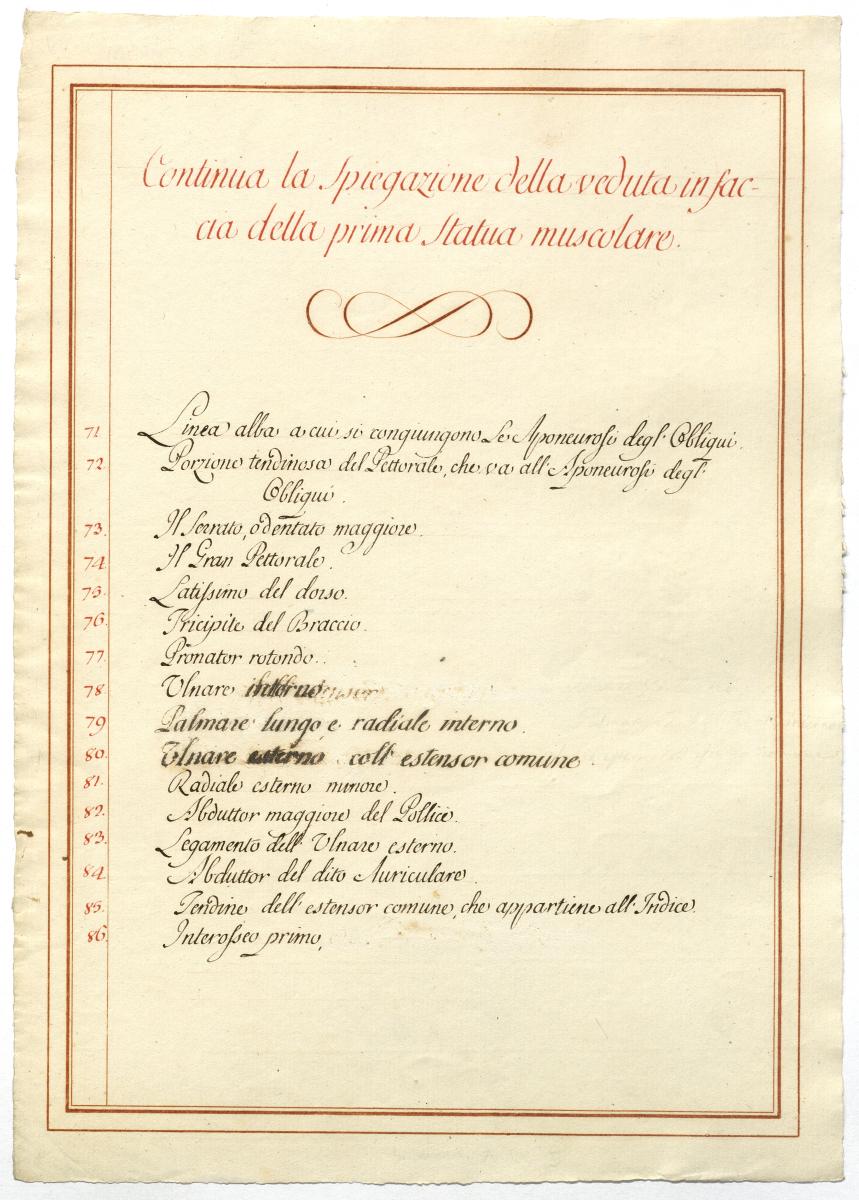 Continua la Spiegazione della veduta in fac-
cia della prima Statua muscolare.
71 Linea alba a cui si congiungono Le Aponeurosi degl' Obliqui.
72. Porzione tendinosa del Pettorale, che va all' Aponeurosi degl'
Obliqui.
73. Il Serrato, o dentato maggiore.
74. Il Gran Pettorale.
75. Latissimo del dorso.
76. Tricipite del Braccio.
77. Pronator rotondo.
78 Ulnare interno
79 Palmare lungo e radiale interno.
80. Ulnare esterno coll' estensor comune.
81. Radiale esterno minore.
82. Abduttor maggiore del Pollice.
83. Legamento dell' Ulnare esterno.
84. Abduttor del dito Auriculare.
85. Tendine dell' estensor comune, che appartiene all' Indice.
86. Interosseo primo,